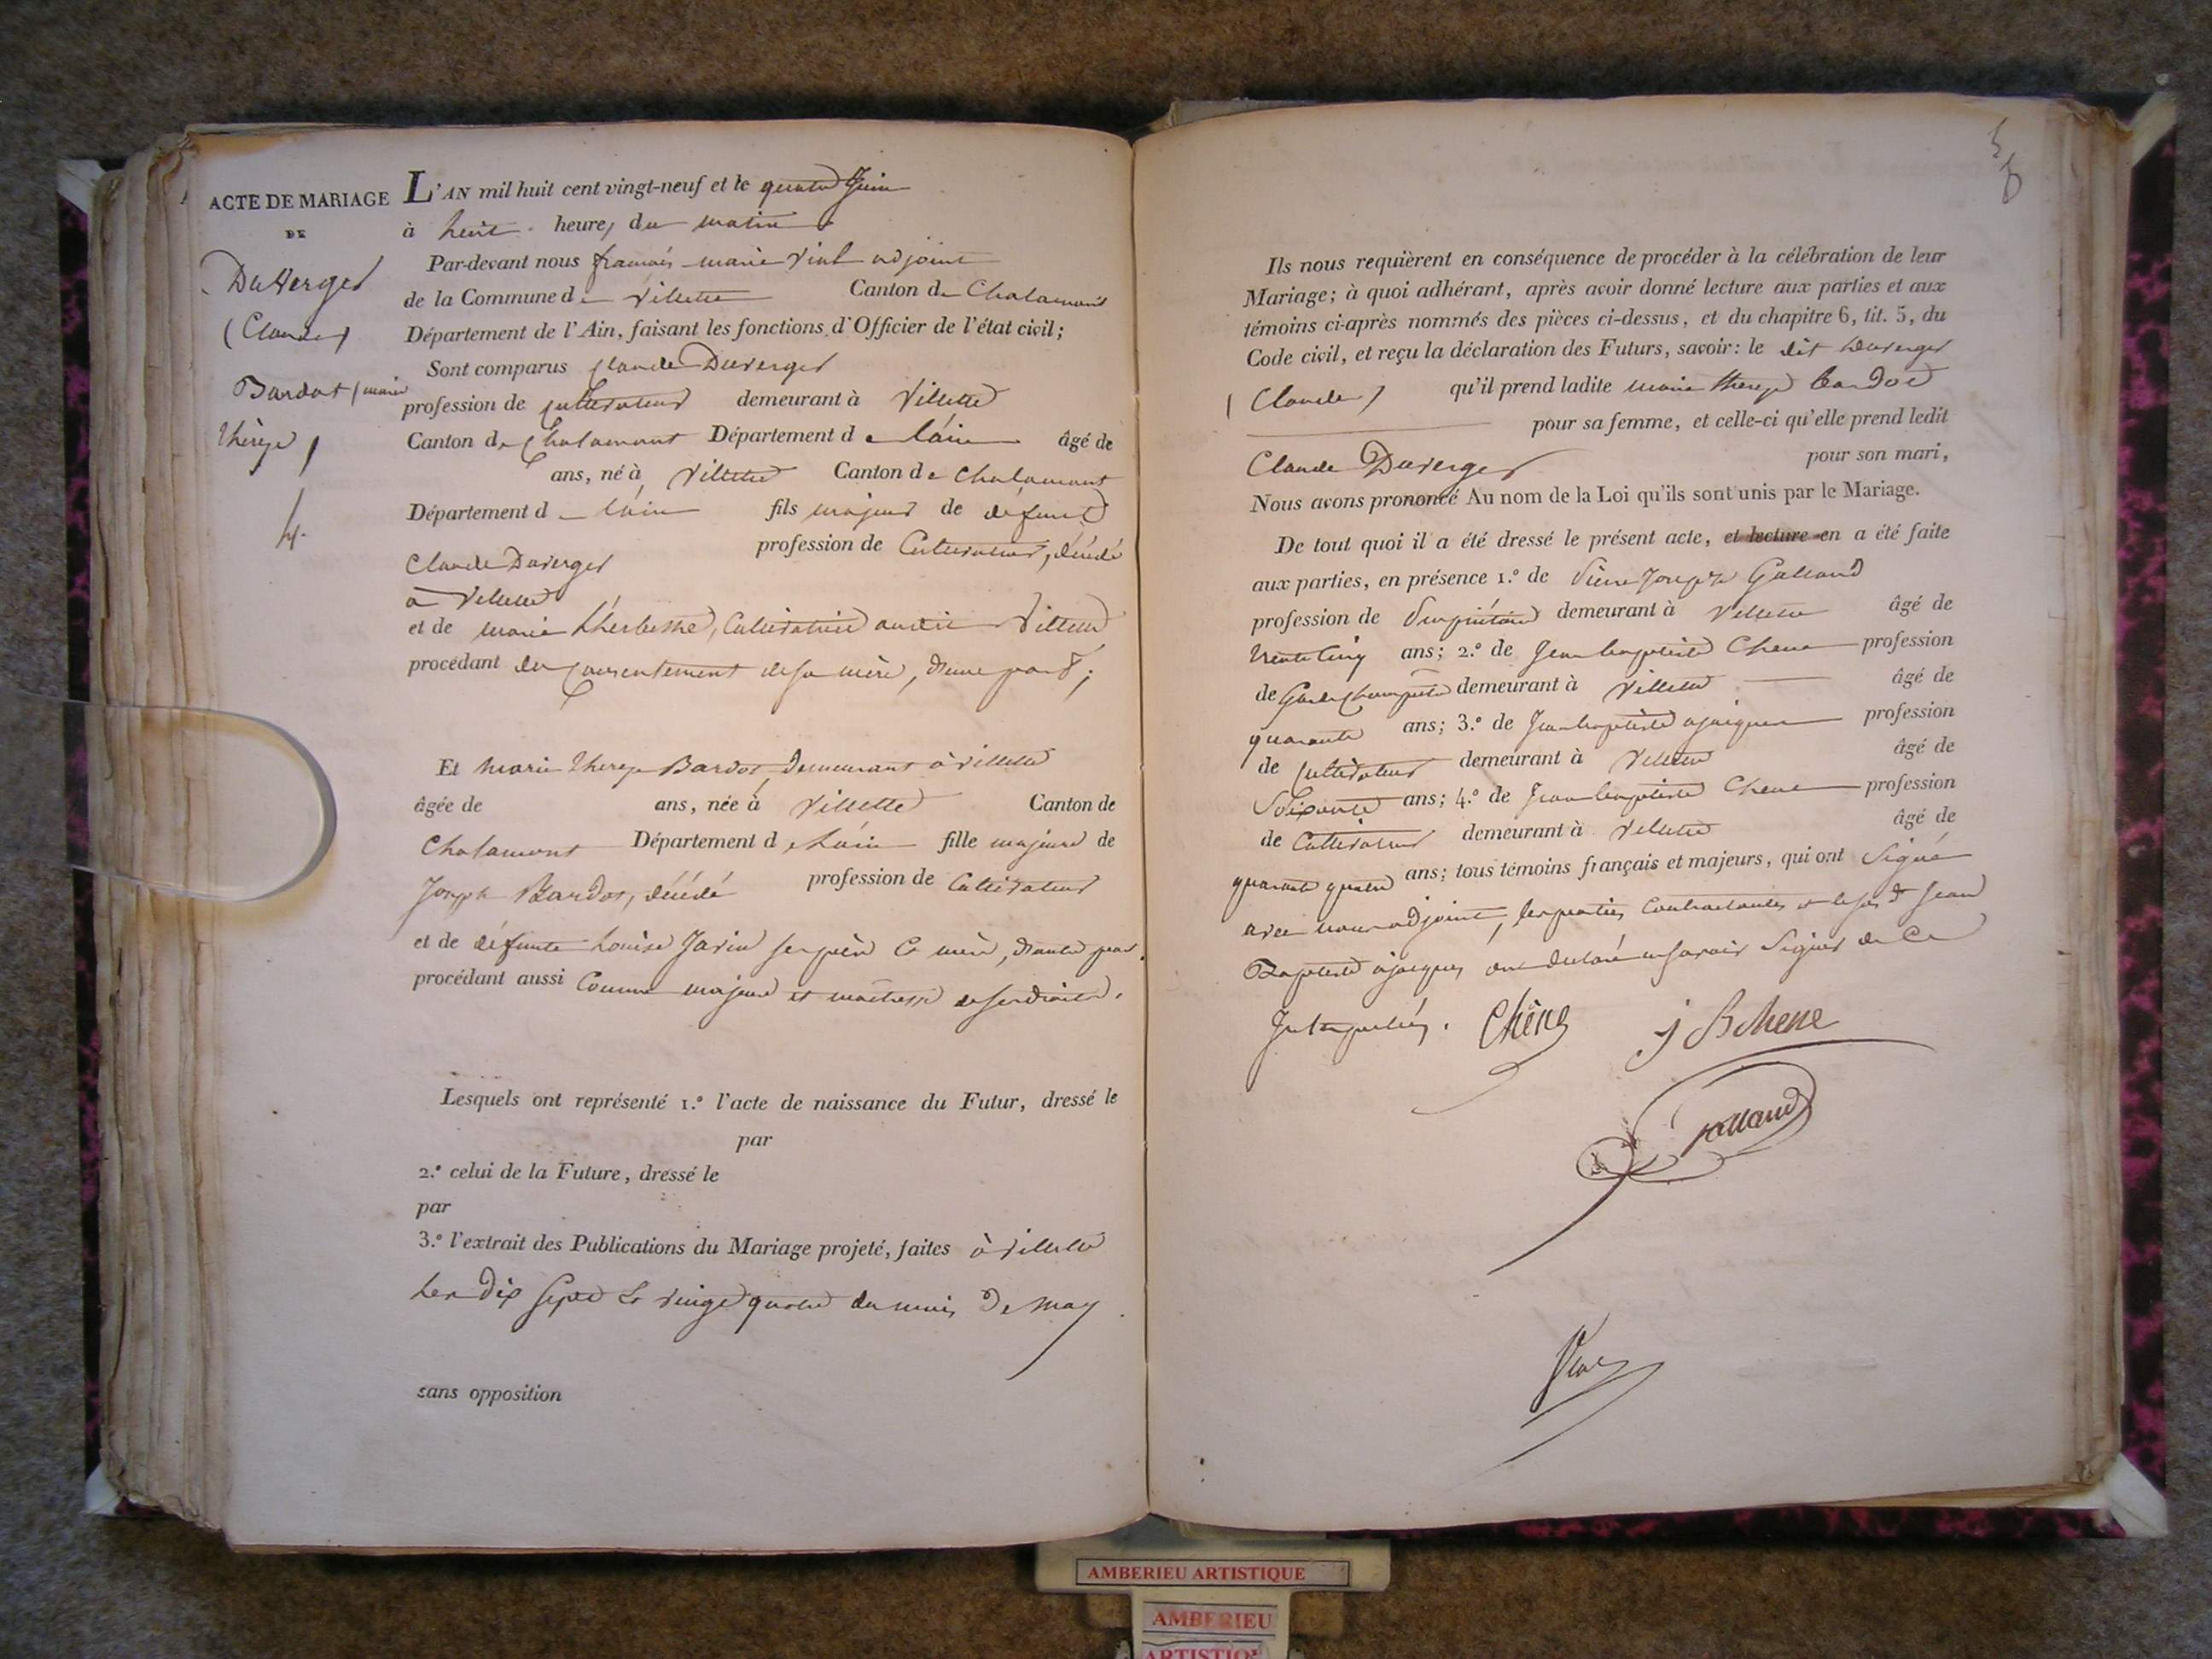 ACTE DE MARIAGE
DE
DuVerger
(Claude)
Bardot (marie
thérèse)
4.
L'AN mil huit cent vingt-neuf et le quatre Juin
à huit heures du matin
Par-devant nous françois marie Vial adjoint
de la Commune de Villette Canton de Chalamont
Département de l'Ain, faisant les fonctions d'Officier de l'état civil;
Sont comparus Claude Duverger
profession de Cultivateur demeurant à Villette
Canton de Chalamont Département de l'ain âgé de
ans, né à Villette Canton de Chalamont
Département de l'ain fils majeur de défunt
Claude Duverger profession de Cultivateur, décédé
à Villette
et de marie Cultivatrice audit Villette
procédant du Consentement de sa mère, d'une part;
Et marie therese Bardot, demeurant à villette
âgée de ans, née à Villette Canton de
Chalamont Département de l'ain fille majeure de
Joseph Bardot, décédé profession de Cultivateur
et de défunte Louise Javin ses père & mère, d'autre part.
procédant aussi Comme majeure et maîtresse de ses droits.
Lesquels ont représenté 1.º l'acte de naissance du Futur, dressé le
par
2.º celui de la Future, dressé le
par
3.º l'extrait des Publications du Mariage projeté, faites à villette
les dix sept & vingt quatre du mois de may
sans opposition
5
Ils nous requièrent en conséquence de procéder à la célébration de leur
Mariage; à quoi adhérant, après avoir donné lecture aux parties et aux
témoins ci-après nommés des pièces ci-dessus, et du chapitre 6, tit. 5, du
Code civil, et reçu la déclaration des Futurs, savoir: le dit Duverger
(Claude) qu'il prend ladite marie therese bardot
pour sa femme, et celle-ci qu'elle prend ledit
Claude Duverger pour son mari,
Nous avons prononcé Au nom de la Loi qu'ils sont unis par le Mariage.
De tout quoi il a été dressé le présent acte, et lecture en a été faite
aux parties, en présence 1.º de Pierre Joseph Galland
profession de Propriétaire demeurant à Villette âgé de
trente cinq ans; 2.º de Jean baptiste Chene profession
de Garde Champêtre demeurant à Villette âgé de
quarante ans; 3.º de Jean baptiste ajacques profession
de Cultivateur demeurant à Villette âgé de
Soixante ans; 4.º de Jean baptiste Chene profession
de Cultivateur demeurant à Villette âgé de
quarante quatre ans; tous témoins français et majeurs, qui ont Signé
avec nous adjoint, les parties Contractantes et led. Jean
Baptiste ajacques ont déclaré ne savoir Signer de Ce
Interpellés. Chêne J B Chene
Galland
Vial
AMBERIEU ARTISTIQUE
AMBERIEU
ARTISTIQUE